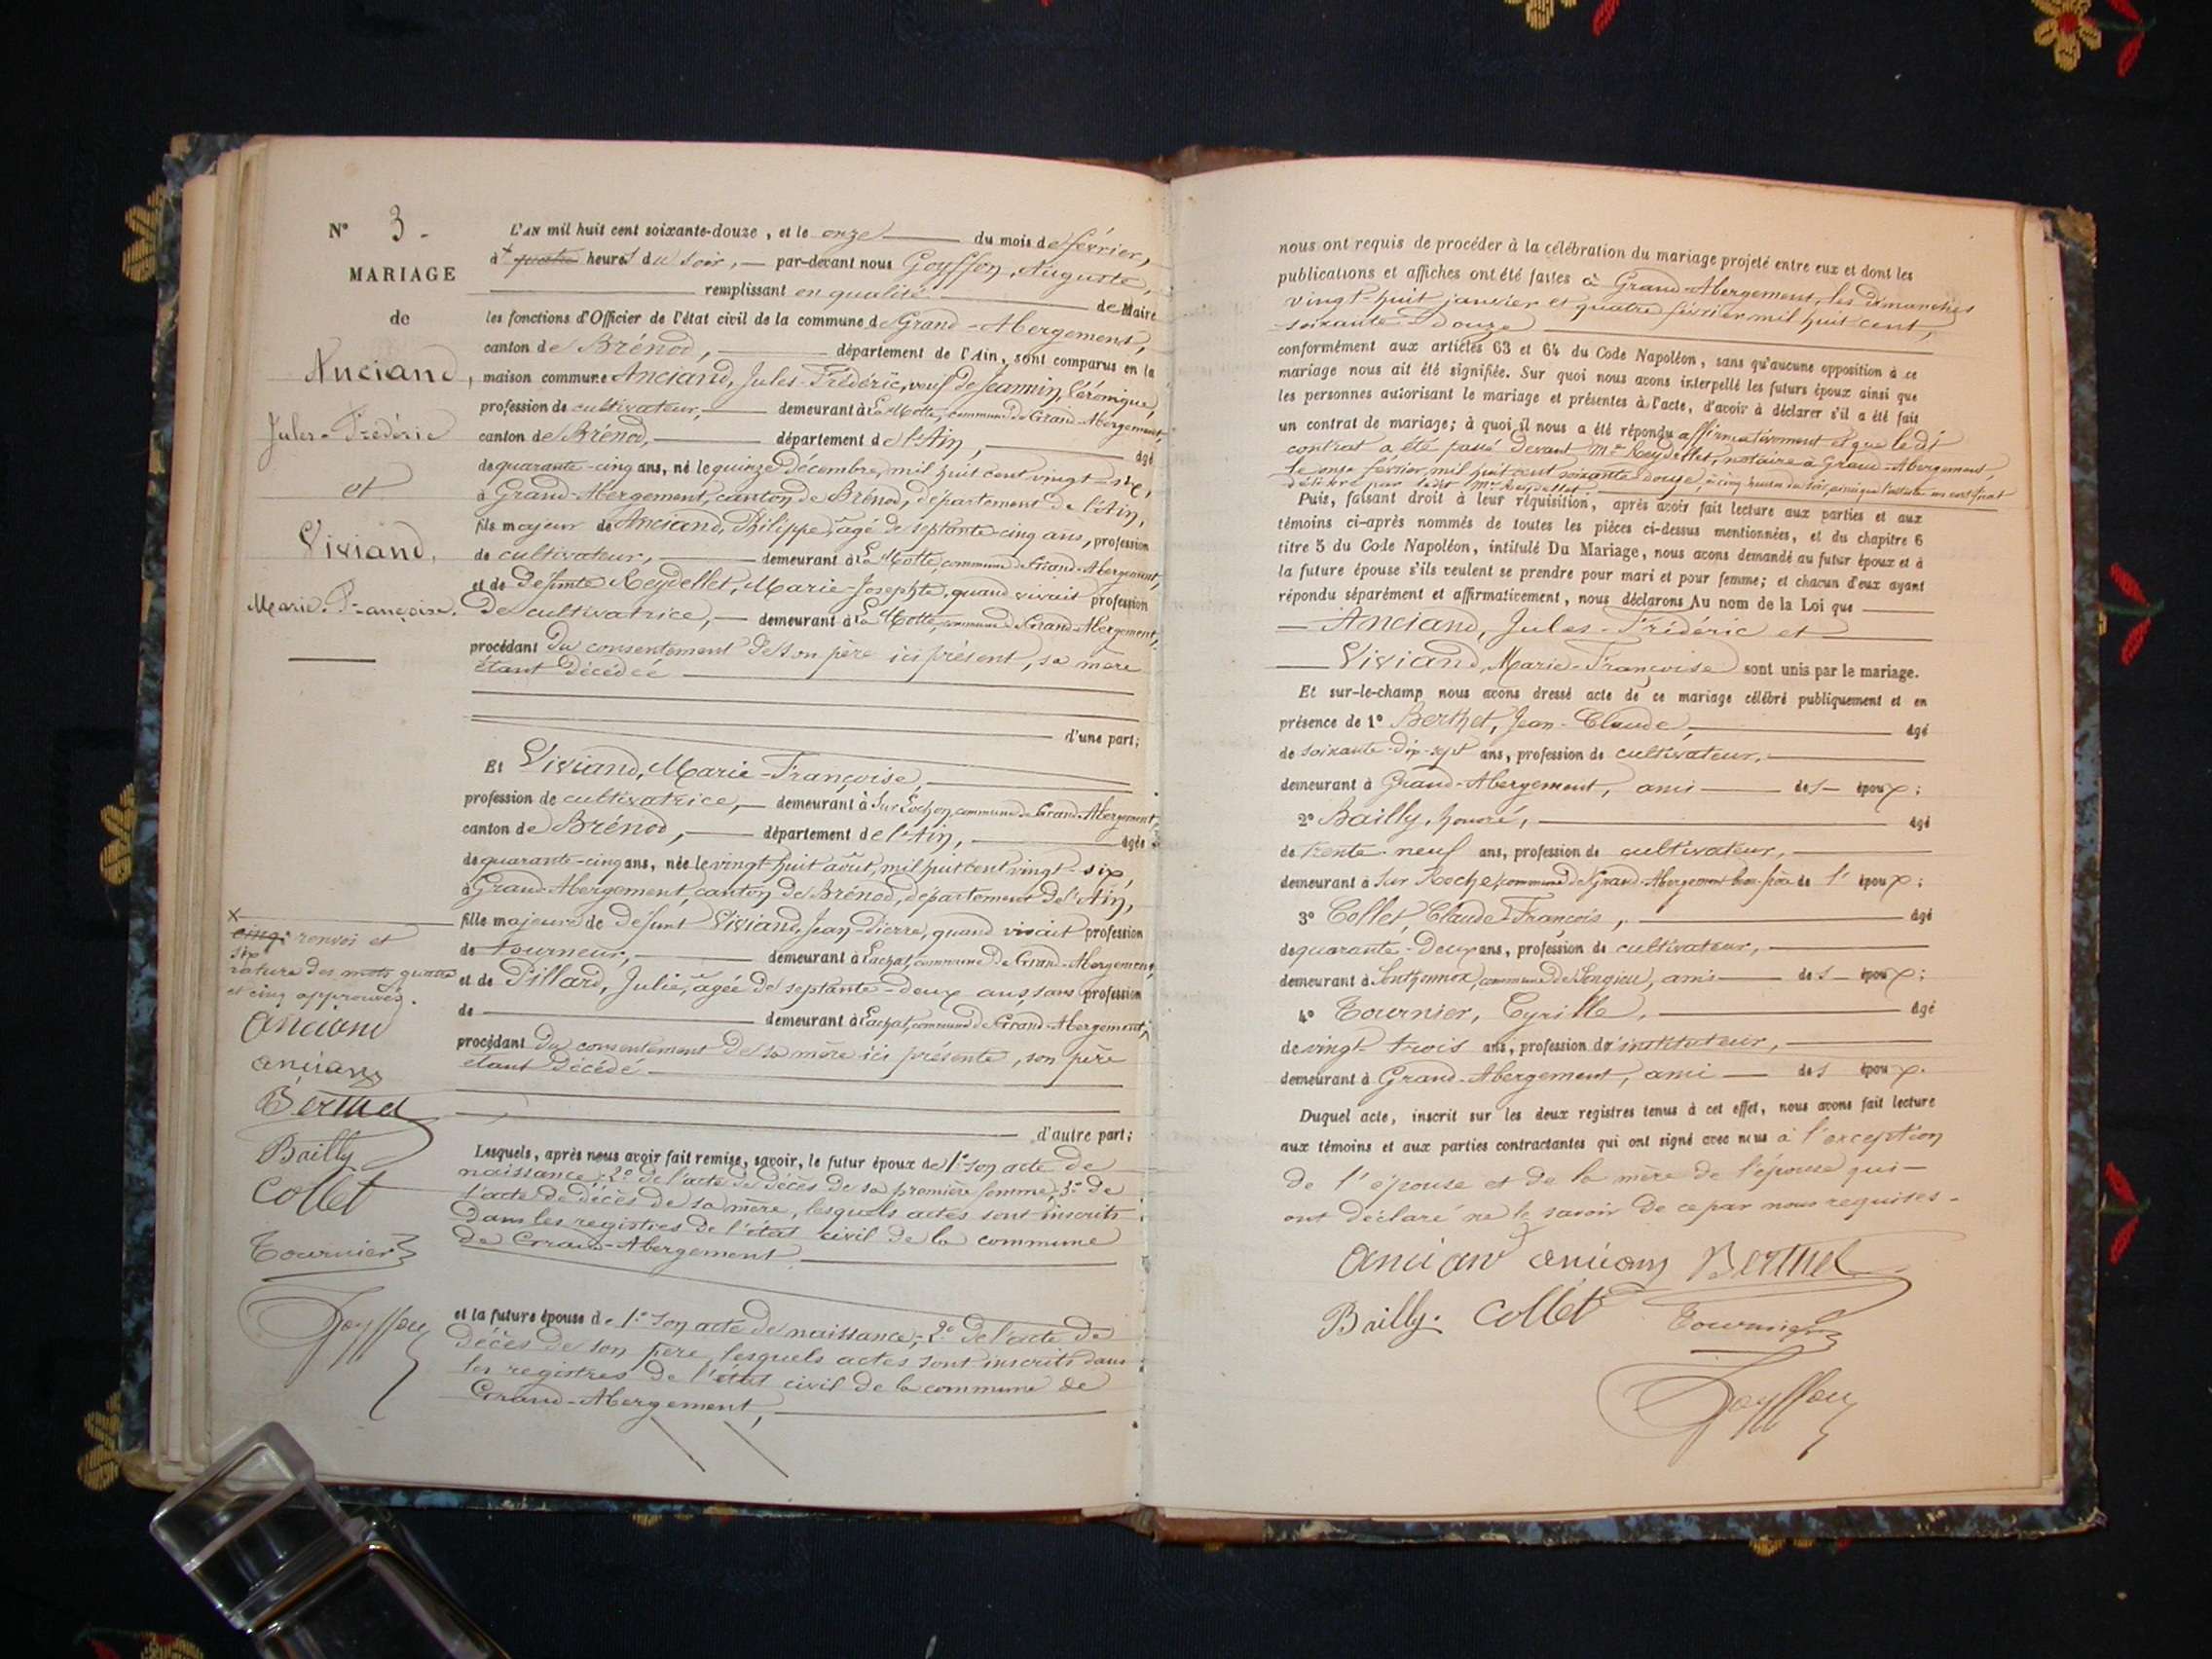 N° 3 -
MARIAGE
de
Anciand,
Jules-Frédéric
et
Viviand,
Marie-Françoise.
L'AN mil huit cent soixante-douze, et le onze du mois de février,
à + quatre heures du soir, par-devant nous Goyffon, Auguste,
remplissant en qualité de Maire
les fonctions d'Officier de l'état civil de la commune de Grand-Abergement,
canton de Brénod, département de l'Ain, sont comparus en la
maison commune Anciand, Jules-Frédéric, veuf de Jeannin, Véronique,
profession de cultivateur, demeurant à La Motte, commune de Grand-Abergement,
canton de Brénod, département de l'Ain, âgé
de quarante-cinq ans, né le quinze décembre, mil huit cent vingt-six,
à Grand-Abergement, canton de Brénod, département de l'Ain,
fils majeur de Anciand, Philippe, âgé de septante-cinq ans, profession
de cultivateur, demeurant à La Motte, commune de Grand-Abergement,
et de défunte Reydellet, Marie-Josephte, quand vivait profession
de cultivatrice, demeurant à La Motte, commune de Grand-Abergement,
procédant du consentement de son père ici présent, sa mère
étant décédée
d'une part;
Et Viviand, Marie-Françoise,
profession de cultivatrice, demeurant à Sur Lochon, commune de Grand-Abergement,
canton de Brénod, département de l'Ain, âgée
de quarante-cinq ans, née le vingt-huit août, mil huit cent vingt-six,
à Grand-Abergement, canton de Brénod, département de l'Ain,
fille majeure de défunt Viviand, Jean Pierre, quand vivait profession
de tourneur, demeurant à Lachat, commune de Grand-Abergement,
et de Pillard, Julie, âgée de septante-deux ans, sans profession
de demeurant à Lachat, commune de Grand-Abergement,
procédant du consentement de sa mère ici présente, son père
étant décédé
d'autre part;
Lesquels, après nous avoir fait remise, savoir, le futur époux de 1° son acte de
naissance; 2° de l'acte de décès de sa première femme, 3° de
l'acte de décès de sa mère, lesquels actes sont inscrits
dans les registres de l'état civil de la commune
de Grand-Abergement
et la future épouse de 1° son acte de naissance; 2° de l'acte de
décès de son père, lesquels actes sont inscrits dans
les registres de l'état civil de la commune de
Grand-Abergement,
x
cinq renvoi et
six
rature des mots quatre
et cinq approuvés.
Anciand
anciand
Berthet
Bailly
Collet
Tournier
Goyffon
nous ont requis de procéder à la célébration du mariage projeté entre eux et dont les
publications et affiches ont été faites à Grand-Abergement, les dimanches
vingt-huit janvier et quatre février mil huit cent
soixante-douze
conformément aux articles 63 et 64 du Code Napoléon, sans qu'aucune opposition à ce
mariage nous ait été signifiée. Sur quoi nous avons interpellé les futurs époux ainsi que
les personnes autorisant le mariage et présentes à l'acte, d'avoir à déclarer s'il a été fait
un contrat de mariage; à quoi il nous a été répondu affirmativement et que ledit
contrat a été passé devant Me Reydellet, notaire à Grand-Abergement,
le onze février, mil huit cent soixante-douze, à cinq heures du soir, ainsi que l'atteste un certificat
délivré par ledit Me Reydellet.
Puis, faisant droit à leur réquisition, après avoir fait lecture aux parties et aux
témoins ci-après nommés de toutes les pièces ci-dessus mentionnées, et du chapitre 6
titre 5 du Code Napoléon, intitulé Du Mariage, nous avons demandé au futur époux et à
la future épouse s'ils veulent se prendre pour mari et pour femme; et chacun d'eux ayant
répondu séparément et affirmativement, nous déclarons Au nom de la Loi que
Anciand, Jules-Frédéric et
Viviand, Marie-Françoise sont unis par le mariage.
Et sur-le-champ nous avons dressé acte de ce mariage célébré publiquement et en
présence de 1° Berthet, Jean-Claude, âgé
de soixante-dix-sept ans, profession de cultivateur,
demeurant à Grand-Abergement, ami des époux;
2° Bailly, honoré, âgé
de trente-neuf ans, profession de cultivateur,
demeurant à Sur Roche, commune de Grand-Abergement beau-frère de l'époux;
3° Collet, Claude-François, âgé
de quarante-deux ans, profession de cultivateur,
demeurant à Sothonnod, commune de Songieu, ami des époux;
4° Tournier, Cyrille, âgé
de vingt-trois ans, profession d'instituteur,
demeurant à Grand-Abergement, ami des époux.
Duquel acte, inscrit sur les deux registres tenus à cet effet, nous avons fait lecture
aux témoins et aux parties contractantes qui ont signé avec nous à l'exception
de l'épouse et de la mère de l'épouse qui
ont déclaré ne le savoir de ce par nous requises.
Anciand anciand Berthet
Bailly. Collet Tournier
Goyffon